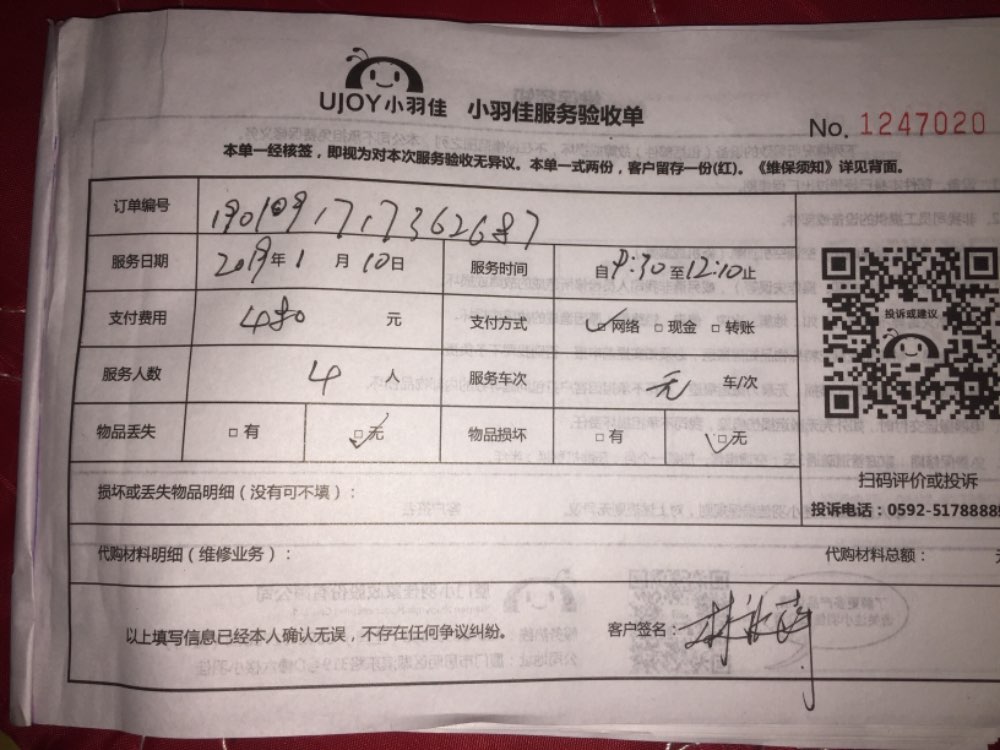 UJOY小羽佳 小羽佳服务验收单
No. 1247020
本单一经核签，即视为对本次服务验收无异议。本单一式两份，客户留存一份(红)。《维保须知》详见背面。
订单编号 1901091717362687
服务日期 2019年1月10日 服务时间 自9:30至12:10止
支付费用 480元 支付方式 ☑网络 □现金 □转账
投诉或建议
服务人数 4人 服务车次 无 车/次
物品丢失 □有 ☑无 物品损坏 □有 ☑无
扫码评价或投诉
损坏或丢失物品明细（没有可不填）：
投诉电话：0592-5178888
代购材料明细（维修业务）： 代购材料总额：
以上填写信息已经本人确认无误，不存在任何争议纠纷。 客户签名：